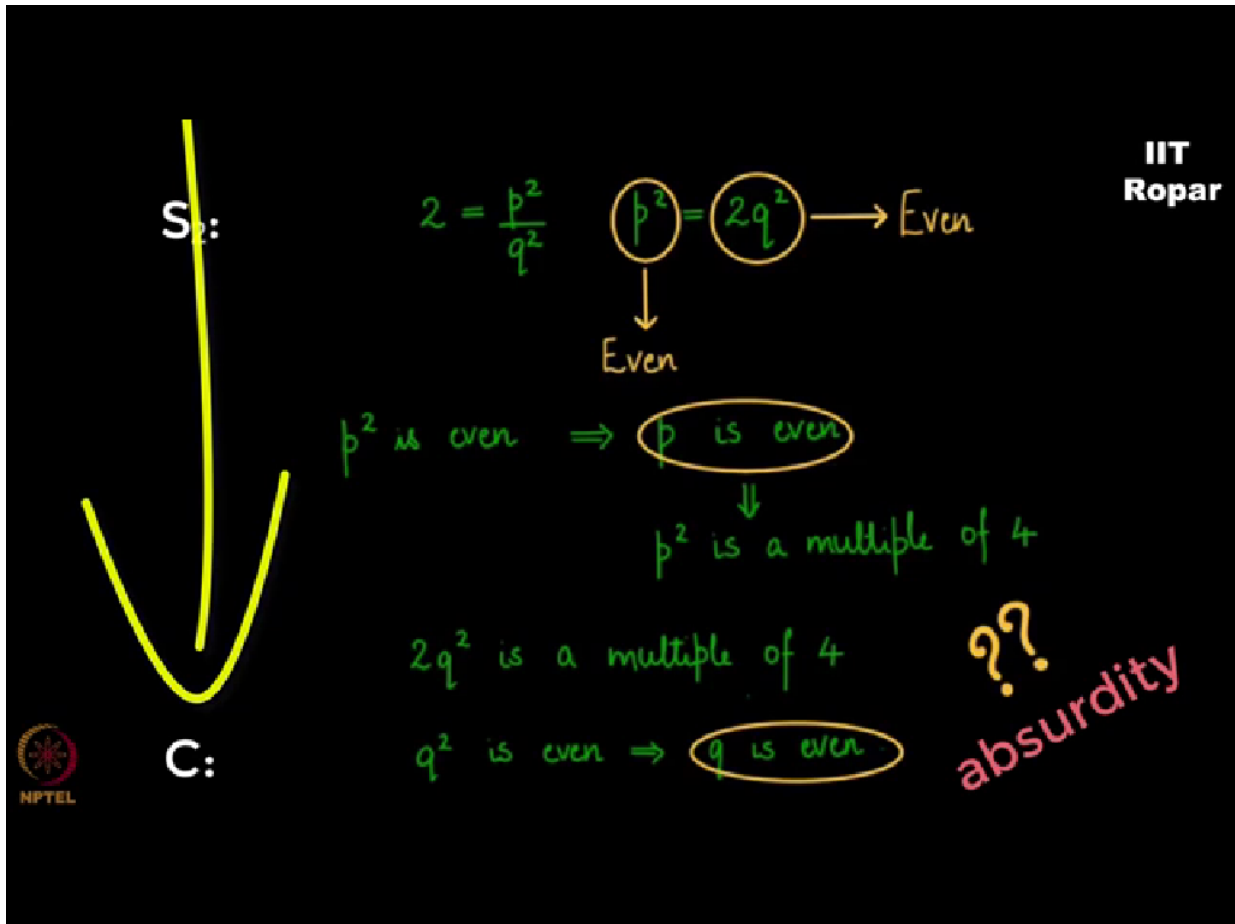 IIT
Ropar
S₂: 2 = p²/q² p² = 2q² → Even
Even
p² is even ⇒ p is even
⇓
p² is a multiple of 4
2q² is a multiple of 4 ??
absurdity
C: q² is even ⇒ q is even
NPTEL